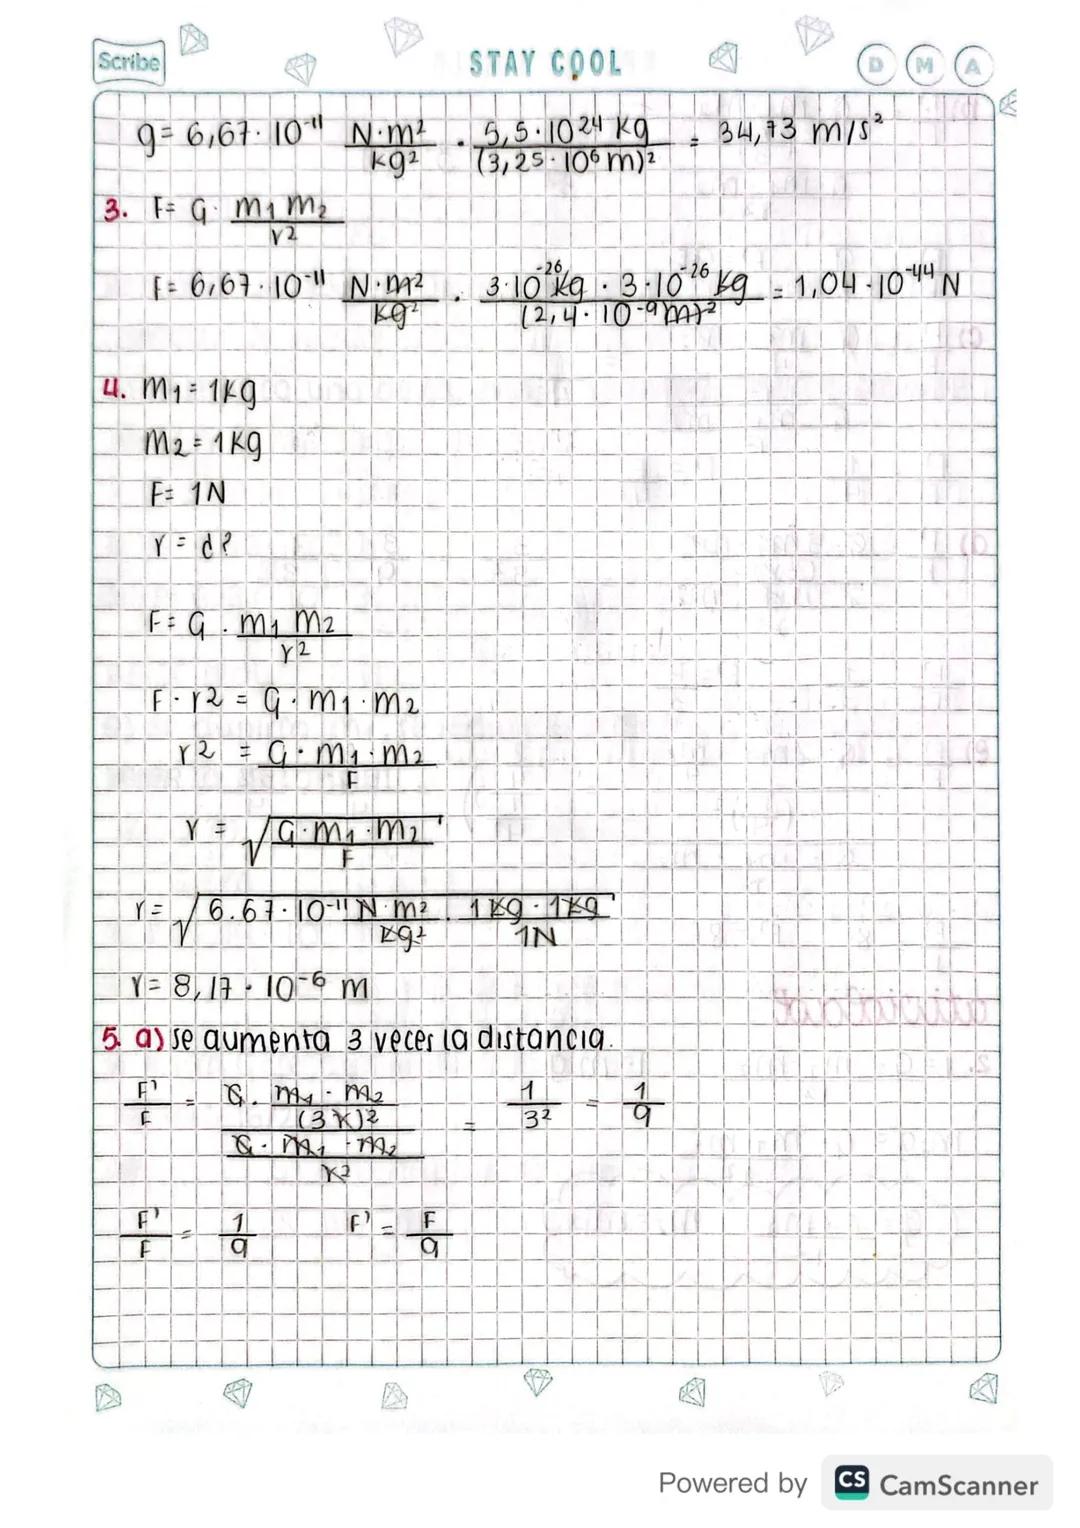 Scribe STAY COOL D M A
g= 6,67·10⁻¹¹ N·m²/kg² · 5,5·10²⁴ kg/(3,25·10⁶ m)² = 34,73 m/s²
3. F= G· m₁ m₂/r²
F= 6,67·10⁻¹¹ N·m²/kg² · 3·10⁻²⁶ kg · 3·10⁻²⁶ kg/(2,4·10⁻⁹ m)² = 1,04·10⁻⁴⁴ N
4. m₁ = 1kg
m₂ = 1kg
F= 1N
r = d?
F= G · m₁ m₂/r²
F · r² = G · m₁ · m₂
r² = G · m₁ · m₂/F
r = √(G·m₁·m₂/F)
r = √(6.67·10⁻¹¹ N·m²/kg² · 1kg · 1kg/1N)
r = 8,17 · 10⁻⁶ m
5. a) se aumenta 3 veces la distancia.
F'/F = (G · m₁ · m₂/(3r)²)/(G · m₁ · m₂/r²) = 1/3² = 1/9
F'/F = 1/9 F' = F/9
Powered by CS CamScanner